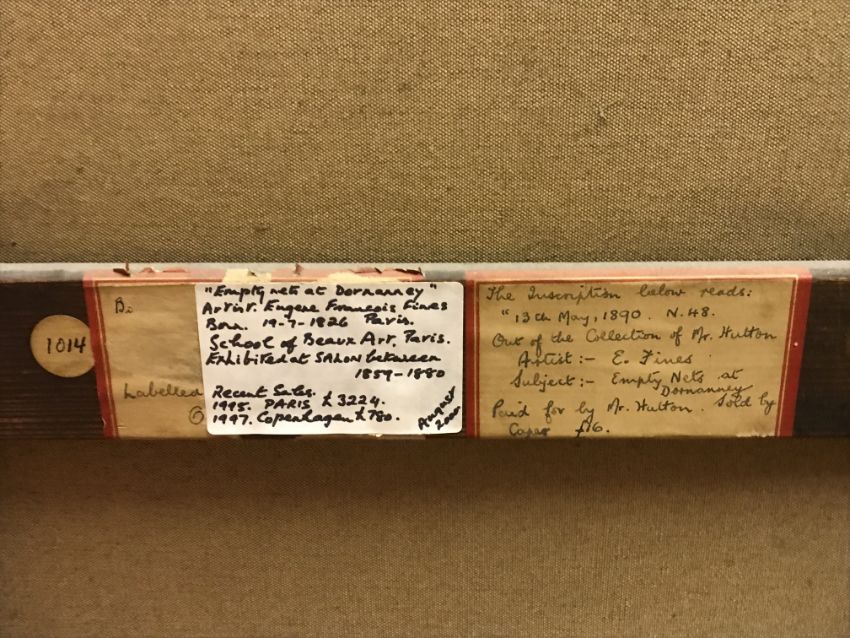 1014
B.
Labelled
"Empty nets at Dornanney"
Artist. Eugene Francois Fines
Born. 19-7-1826 Paris.
School of Beaux Art, Paris.
Exhibited at SALON between
1859-1880
Recent Sales.
1995. PARIS £3224.
1997. Copenhagen £780.
August
2000
The Inscription below reads:
"13th May, 1890. N.48.
Out of the Collection of Mr. Hutton
Artist:- E. Fines
Subject:- Empty Nets at
Dornanney
Paid for by Mr. Hutton. Sold by
£16.